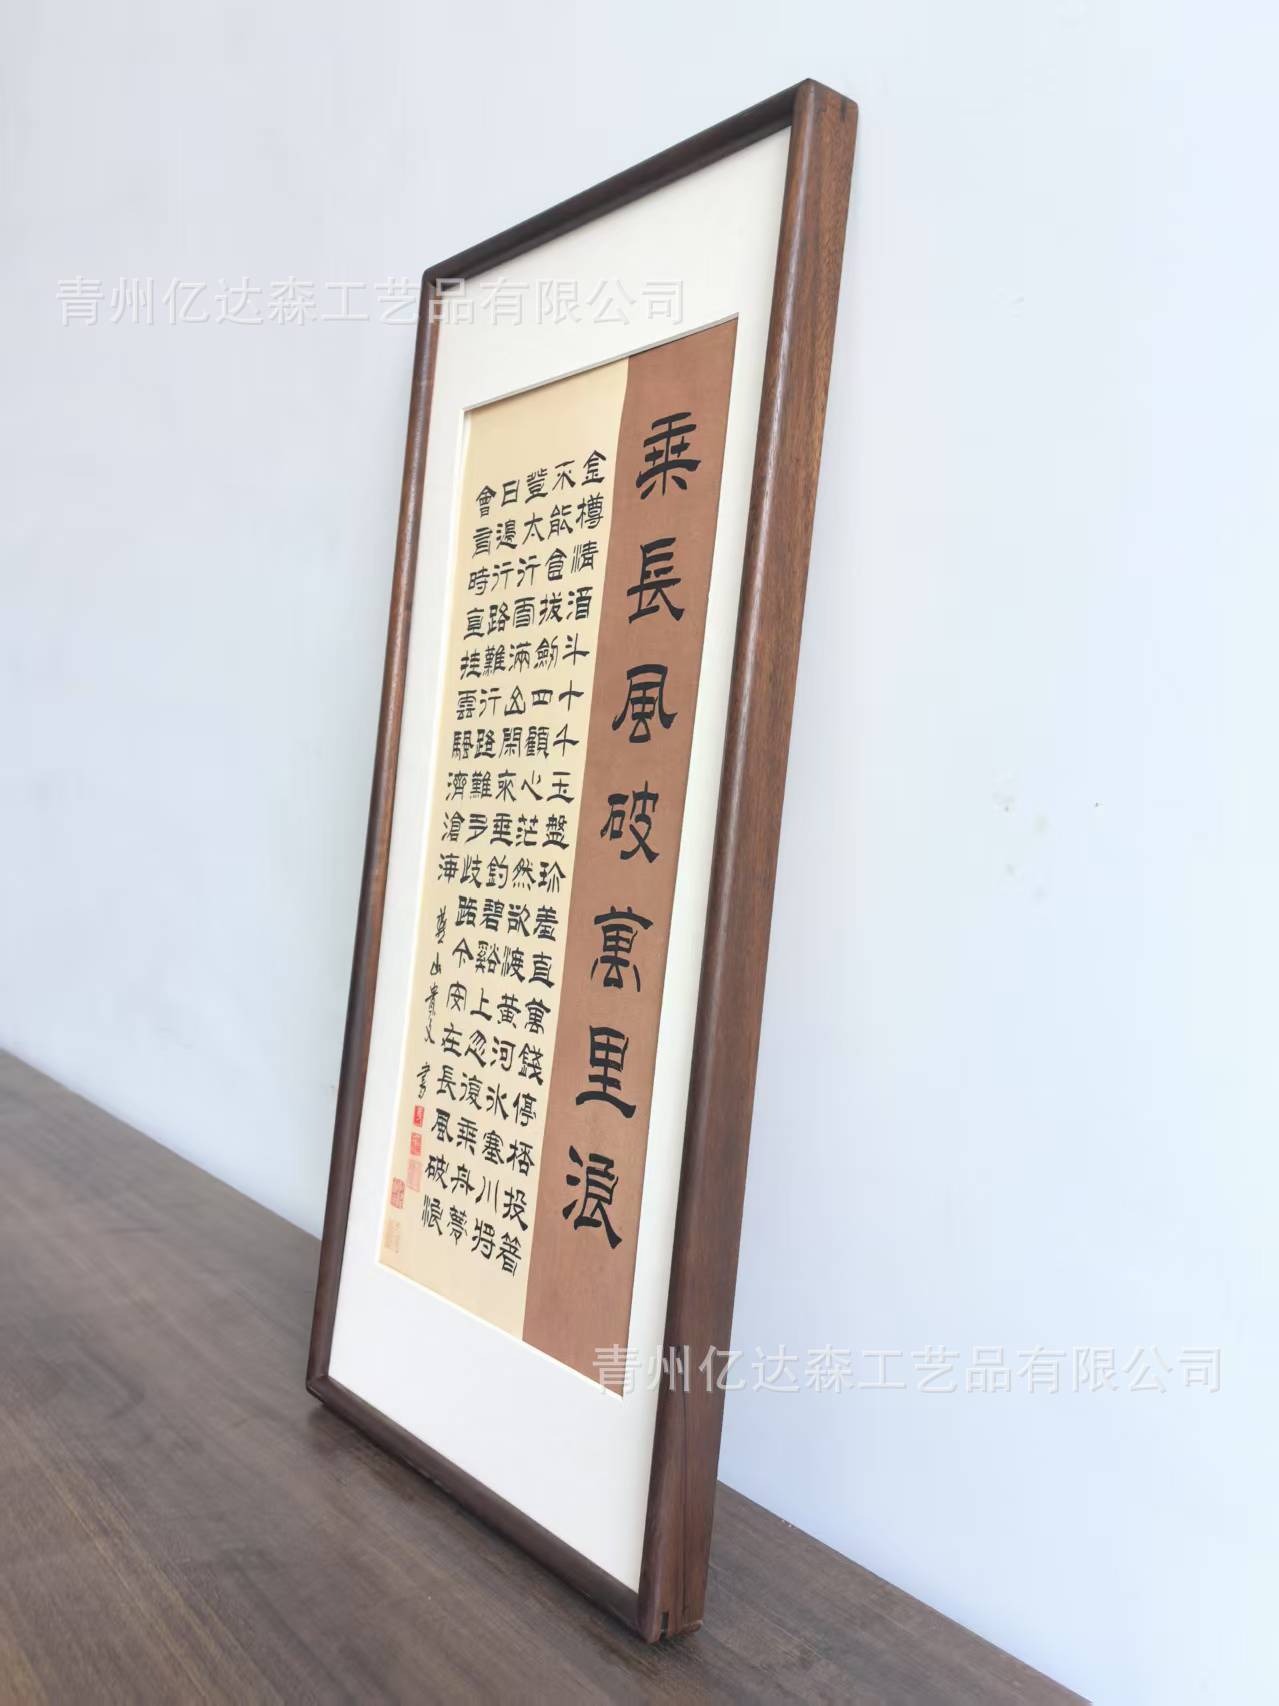 青州亿达森工艺品有限公司
乘長風破萬里浪
金樽清酒斗十千玉盤珍羞直萬錢停桮投箸
不能食拔劍四顧心茫然欲渡黃河冰塞川將
登太行雪滿山閑來垂釣碧谿上忽復乘舟夢
日邊行路難行路難多歧路今安在長風破浪
會有時直挂雲帆濟滄海
書
青州亿达森工艺品有限公司